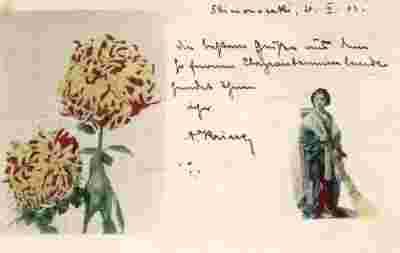 Shimonoseki, 21. X. 03.
Die besten Grüsse aus dem
so fernen Chrysanthemumlande
sendet Ihnen
Ihr